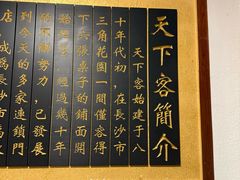 天下客簡介
天下客始建于八
十年代初，在長沙市
三角花園一間僅容得
下兵張桌子的鋪面開
始經營，經過幾十年
的不懈努力，已發展
到今天的多家連鎖門
店，成爲長沙市